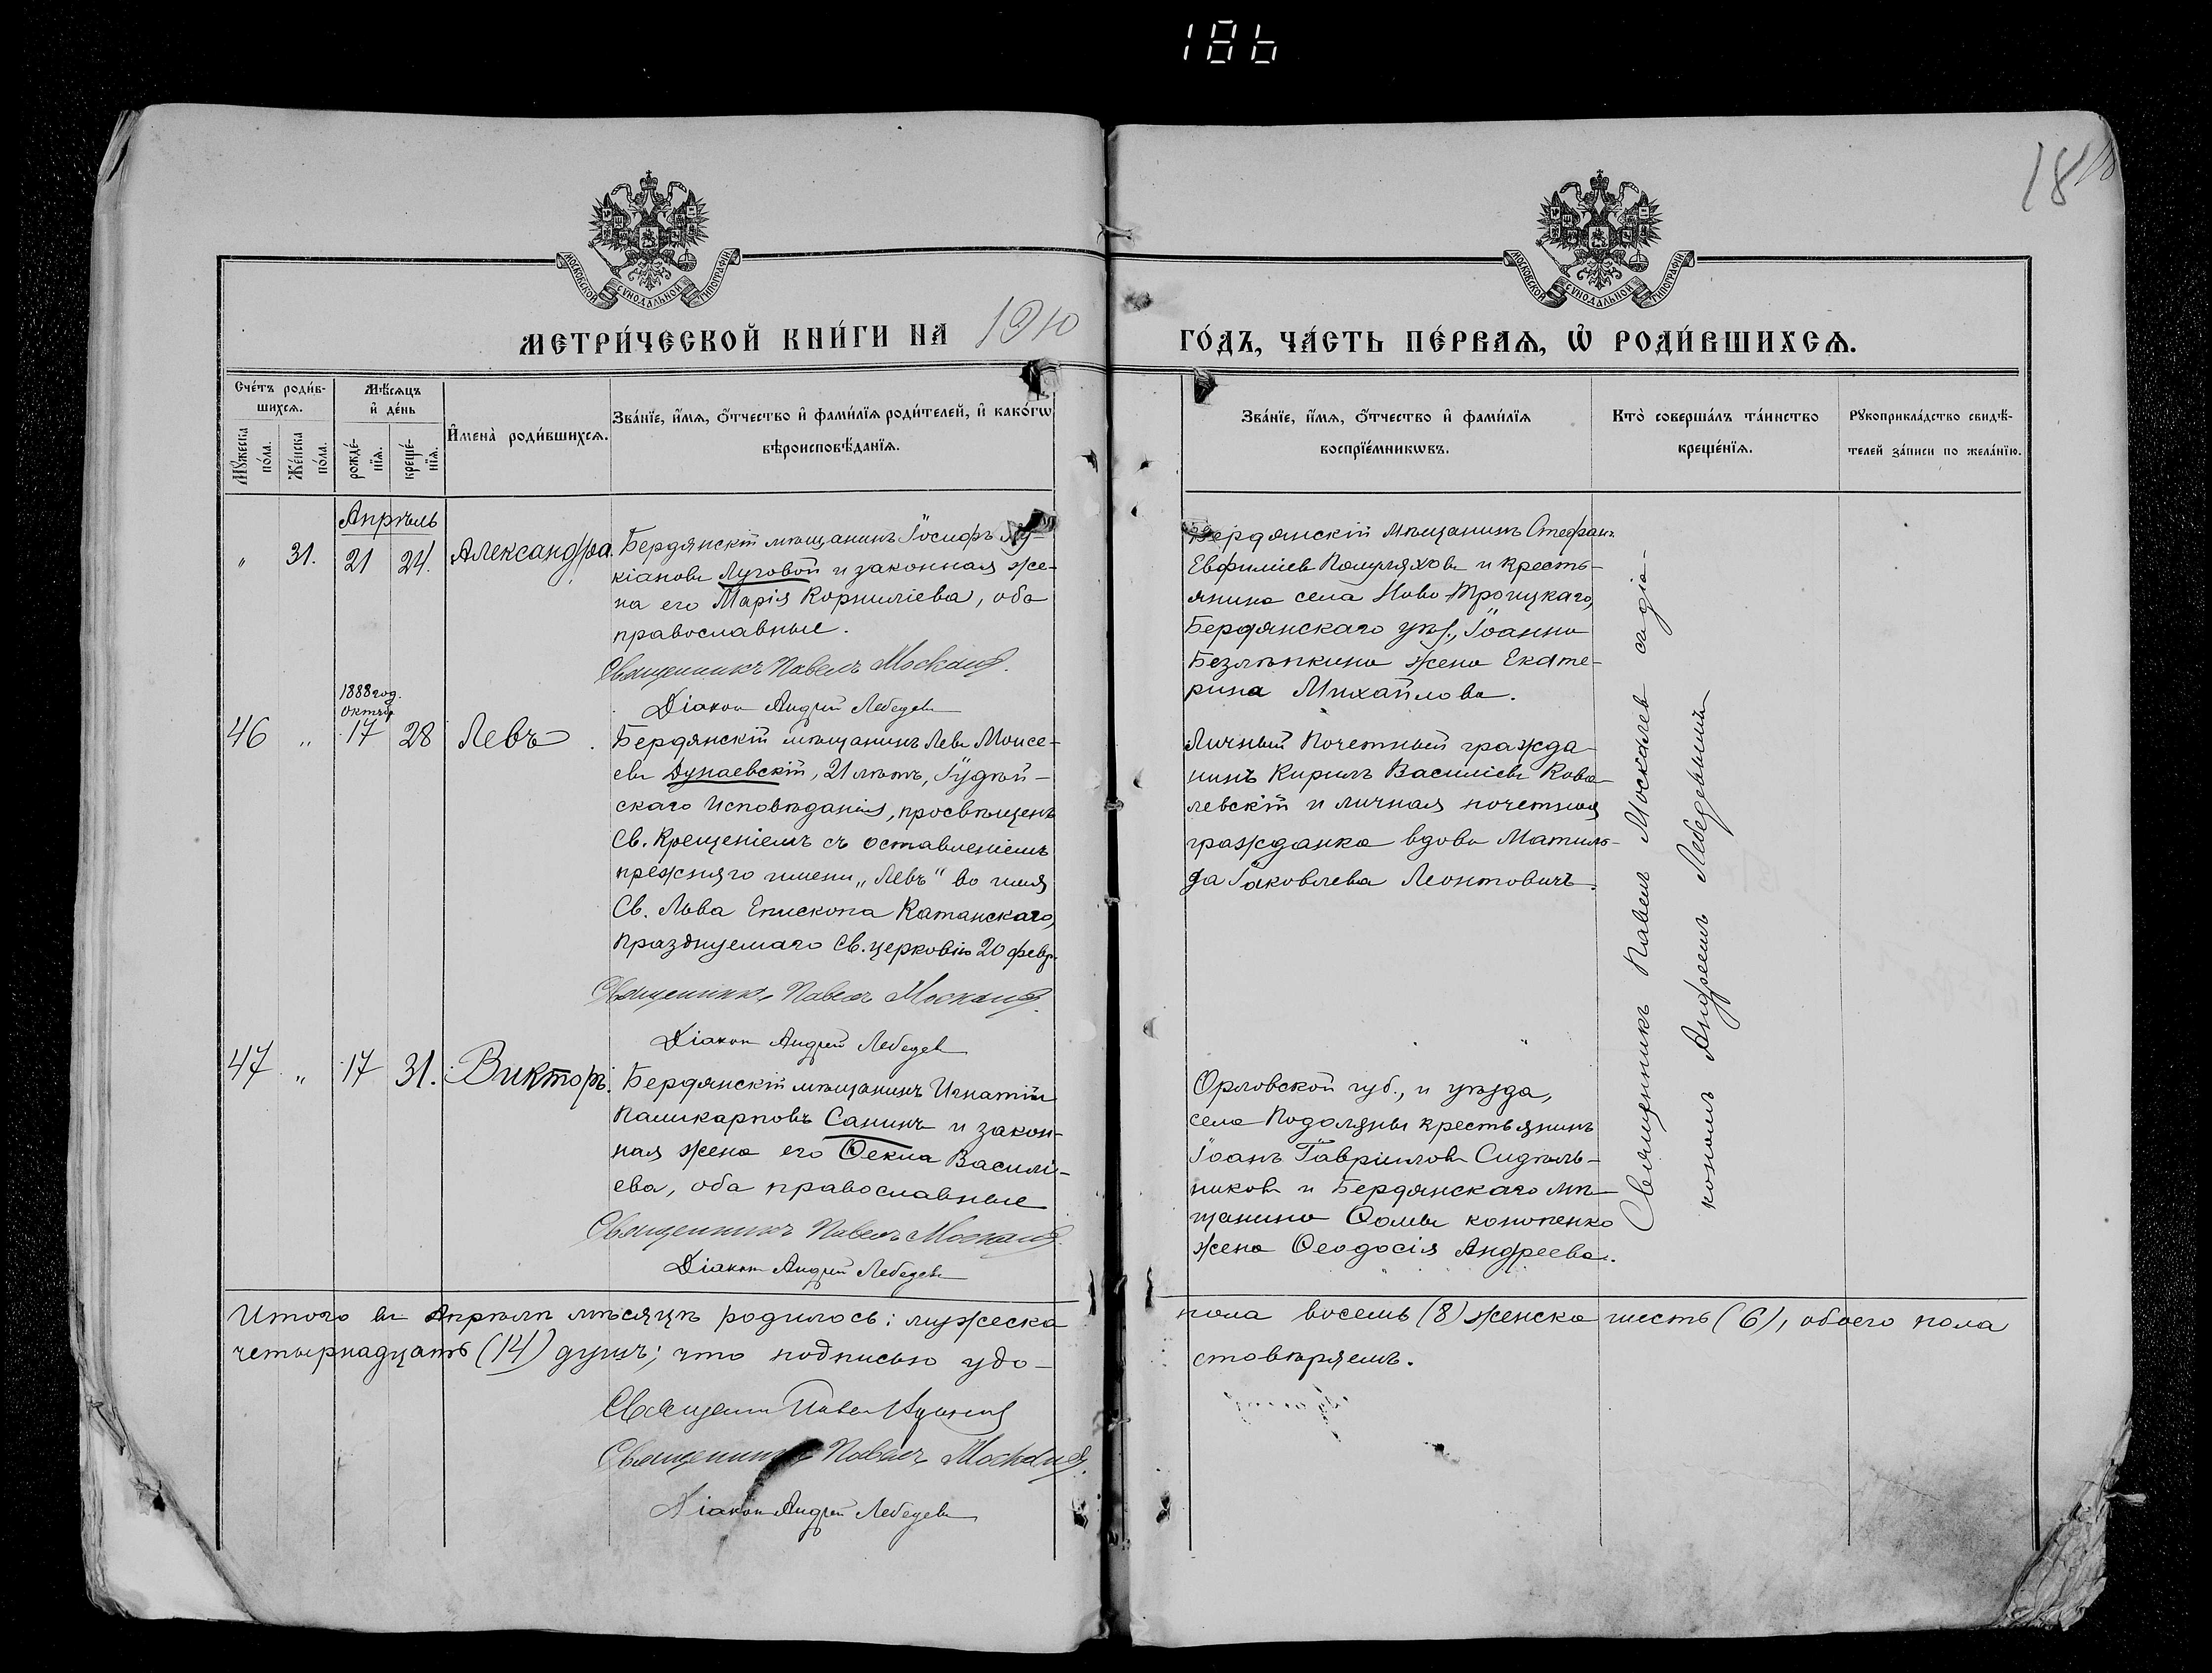 186
18
МОСКОВСКОЙ СУНОДАЛЬНОЙ ТИПОГРАФІИ
МОСКОВСКОЙ СУНОДАЛЬНОЙ ТИПОГРАФІИ
МЕТРИ́ЧЕСКОЙ КНИ́ГИ НА 1910
ГО́ДЪ, ЧА́СТЬ ПЕ́РВАѦ, Ѡ҆ РОДИ́ВШИХСѦ.
Сче́тъ роди́в-
шихсѧ.
Мꙋ́жеска по́ла.
Же́нска по́ла.
Мѣ́сѧцъ
и҆ де́нь
рожде́-
нїѧ.
креще́-
нїѧ.
И҆мена̀ роди́вшихсѧ.
Зва́нїе, и҆́мѧ, ѻ҆́тчество и҆ фами́лїѧ роди́телей, и҆ како́гѡ
вѣроисповѣ́данїѧ.
Зва́нїе, и҆́мѧ, ѻ҆́тчество и҆ фами́лїѧ
воспрїе́мникѡвъ.
Кто̀ соверша́лъ та́инство
креще́нїѧ.
Рꙋкоприкла́дство свидѣ́-
телей за́писи по жела́нїю.
Апрѣль
„ 31. 21 24. Александра.
Бердянскій мѣщанинъ Іосифъ Лу-
кіановъ Луговой и законная же-
на его Марія Корниліева, оба
православные.
Священникъ Павелъ Москалев.
Діакон Андрей Лебедевъ
Бердянскій мѣщанинъ Стефанъ
Евфиміевъ Полуляховъ и кресть-
янина села Ново-Троицкаго,
Бердянскаго уѣз., Іоанна
Безлѣпкина жена Екате-
рина Михайлова.
1888 год.
Октяб
46 „ 17 28 Левъ.
Бердянскій мѣщанинъ Левъ Моисе-
евъ Дунаевскій, 21 лѣтъ, Іудей-
скаго исповѣданія, просвѣщенъ
Св. Крещеніемъ съ оставленіемъ
прежняго имени „Левъ" во имя
Св. Льва Епископа Катанскаго,
празднуемаго Св. церковію 20 февр.
Священникъ Павелъ Москалев.
Діакон Андрей Лебедев
Личный Почетный гражда-
нинъ Кирилъ Василіевъ Кова-
левскій и личная почетная
гражданка вдова Матиль-
да Іаковлева Леонтовичъ.
47 „ 17 31. Викторъ.
Бердянскій мѣщанинъ Игнатій
Поликарповъ Санинъ и закон-
ная жена его Ѳекла Василі-
ева, оба православные
Священникъ Павелъ Москалев.
Діакон Андрей Лебедевъ
Орловской губ., и уѣзда,
села Подоляны крестьянинъ
Іоанъ Гавріиловъ Сидѣль-
никовъ и Бердянскаго мѣ-
щанина Ѳомы Конопенко
жена Ѳеодосія Андреева.
Священникъ Павелъ Москалев съ діа-
кономъ Андреемъ Лебедевымъ
Итого въ Апрѣлѣ мѣсяцѣ родилось: мужеска
пола восемь (8) женска шесть (6), обоего пола
четырнадцать (14) душъ; что подписью удо-
стовѣряемъ.
Священникъ Павелъ
Священникъ Павелъ Москалев.
Діакон Андрей Лебедевъ